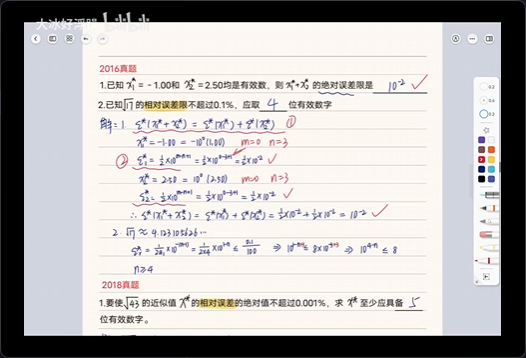 大冰好浮躁 bilibili
2016真题
1.已知 x₁* = -1.00和 x₂* = 2.50均是有效数，则 x₁*+x₂* 的绝对误差限是 10⁻² ✓
2.已知√17的相对误差限不超过0.1%，应取 4 位有效数字
解：1. ε*(x₁*+x₂*) = ε*(x₁*) + ε*(x₂*) ①
x₁* = -1.00 = -10⁰(1.00) m=0 n=3
② ε₁* = ½×10^(m-n+1) = ½×10^(0-3+1) = ½×10⁻² ✓
x₂* = 2.50 = 10⁰(2.50) m=0 n=3
ε₂* = ½×10^(m-n+1) = ½×10^(0-3+1) = ½×10⁻² ✓
∴ ε*(x₁*+x₂*) = ε*(x₁*) + ε*(x₂*) = ½×10⁻² + ½×10⁻² = 10⁻² ✓
2. √17 ≈ 4.123105626…
≤ 0.1/100 ⇒ ⇒ 10^(4-n) ≤ 8
n≥4
2018真题
1.要使√43 的近似值 x* 的相对误差的绝对值不超过0.001%，求 x* 至少应具备 5
位有效数字。